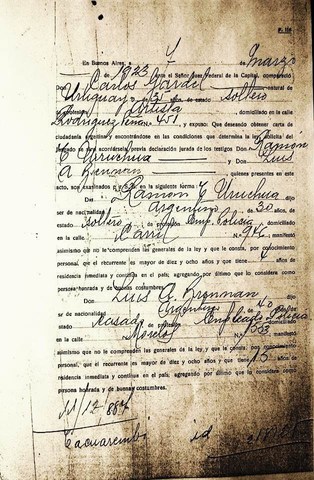 En Buenos Aires, a 7 de Marzo
de 1923 ante el Señor Juez Federal de la Capital, compareció
Don Carlos Gardel natural de
Uruguay de estado soltero
Artista domiciliado en la calle
Rodríguez Peña 451 y expuso: Que deseando obtener carta de
ciudadanía argentina y encontrándose en las condiciones que determina la ley
se sirva acordársela previa declaración jurada de los testigos Don Ramón
C Uruchua y Don Luis
A Brennan quienes presentes en este
acto, son examinados y en la siguiente forma
Don Ramon C Uruchua dijo
ser de nacionalidad Argentino de 30 años, de
estado soltero de profesión Emp. Policia domiciliado
en la calle Carril N.º manifestó
asimismo que no le comprenden las generales de la ley y que le consta, por conocimiento
personal, que el recurrente es mayor de diez y ocho años y que tiene 4 años de
residencia inmediata y continua en el país; agregando por último que lo considera como
persona honrada y de buenas costumbres.
Don Luis A. Brennan dijo
ser de nacionalidad Argentino de 40 años, de
estado Casado de profesión Empleado Policia domiciliado
en la calle manifestó
asimismo que no le comprenden las generales de la ley y que le consta, por conocimiento
personal, que el recurrente es mayor de diez y ocho años y que tiene 15 años de
residencia inmediata y continua en el país; agregando por último que lo considera como
persona honrada y de buenas costumbres.
12/887
Tacuarembó id